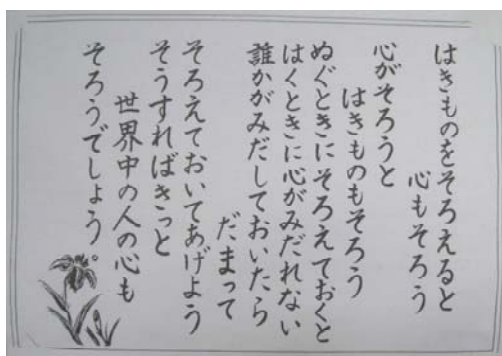 はきものをそろえると
心もそろう
心がそろうと
はきものもそろう
ぬぐときにそろえておくと
はくときに心がみだれない
誰かがみだしておいたら
だまって
そろえておいてあげよう
そうすればきっと
世界中の人の心も
そろうでしょう。